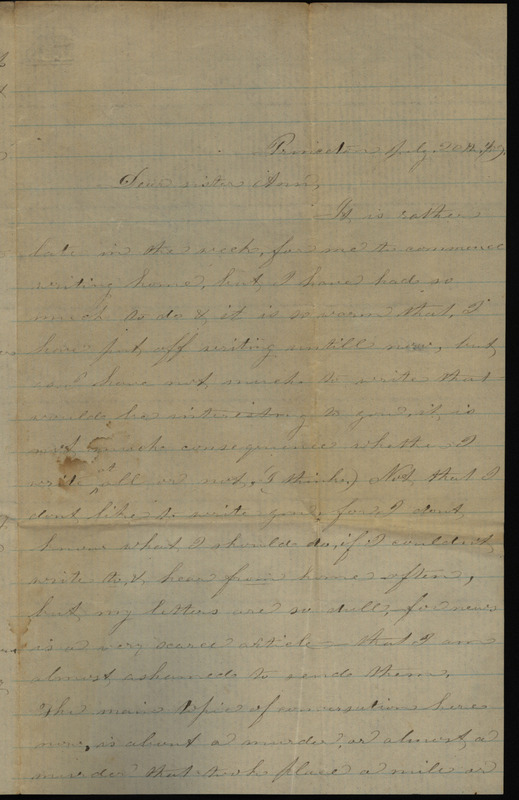 Princeton July 20th,
Dear sister Ann,
It is rather
late in the week, for me to commence
writing home, but, I have had so
much to do & it is so warm that, I
have put off writing untill now, but,
as I have not, much to write that
would be interesting to you, it, is
not much consequence whether I
write at all or not, (I think.) Not, that I
dont like to write you, for, I dont,
know what I should do, if I could'nt
write to, & hear from home often,
but, my letters are so dull, for news
is a very scarce article — that I am
almost, ashamed to send them.
The main topic of conversation here
now, is about a murder, or almost, a
murder that took place a mile or